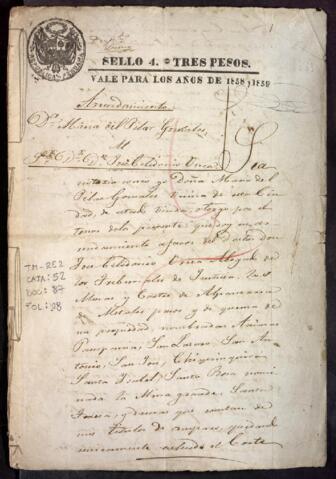 SELLO 4.º TRES PESOS.
VALE PARA LOS AÑOS DE 1858 y 1859
Arrendamiento
Dª Maria del Pilar Gonzales
Al
Dr. Dn. José Celidonio Urrea Sea
notorio como yo Doña Maria del
Pilar Gonzales vecina de esta Ciu
dad, de estado viuda, otorgo por el
tenor de la presente que doy en
arrendamiento a favor del doctor don
José Celidonio Urrea Abogado de
los Tribunales de Justicia, las
Minas y Cortes de
de Metales pacos y de quema de
mi propiedad, nombradas Animas
Pampania, San Lazaro, San An
tonio, San José, Chiquinquira
Santa Isabel, Santa Rosa nomi
nada la Mina grande, Santa
Teresa, y demas que constan de
mis titulos de amparo, quedando
unicamente el Corte
TM-RE2
CATA: 52
DOC: 87
FOL: 98